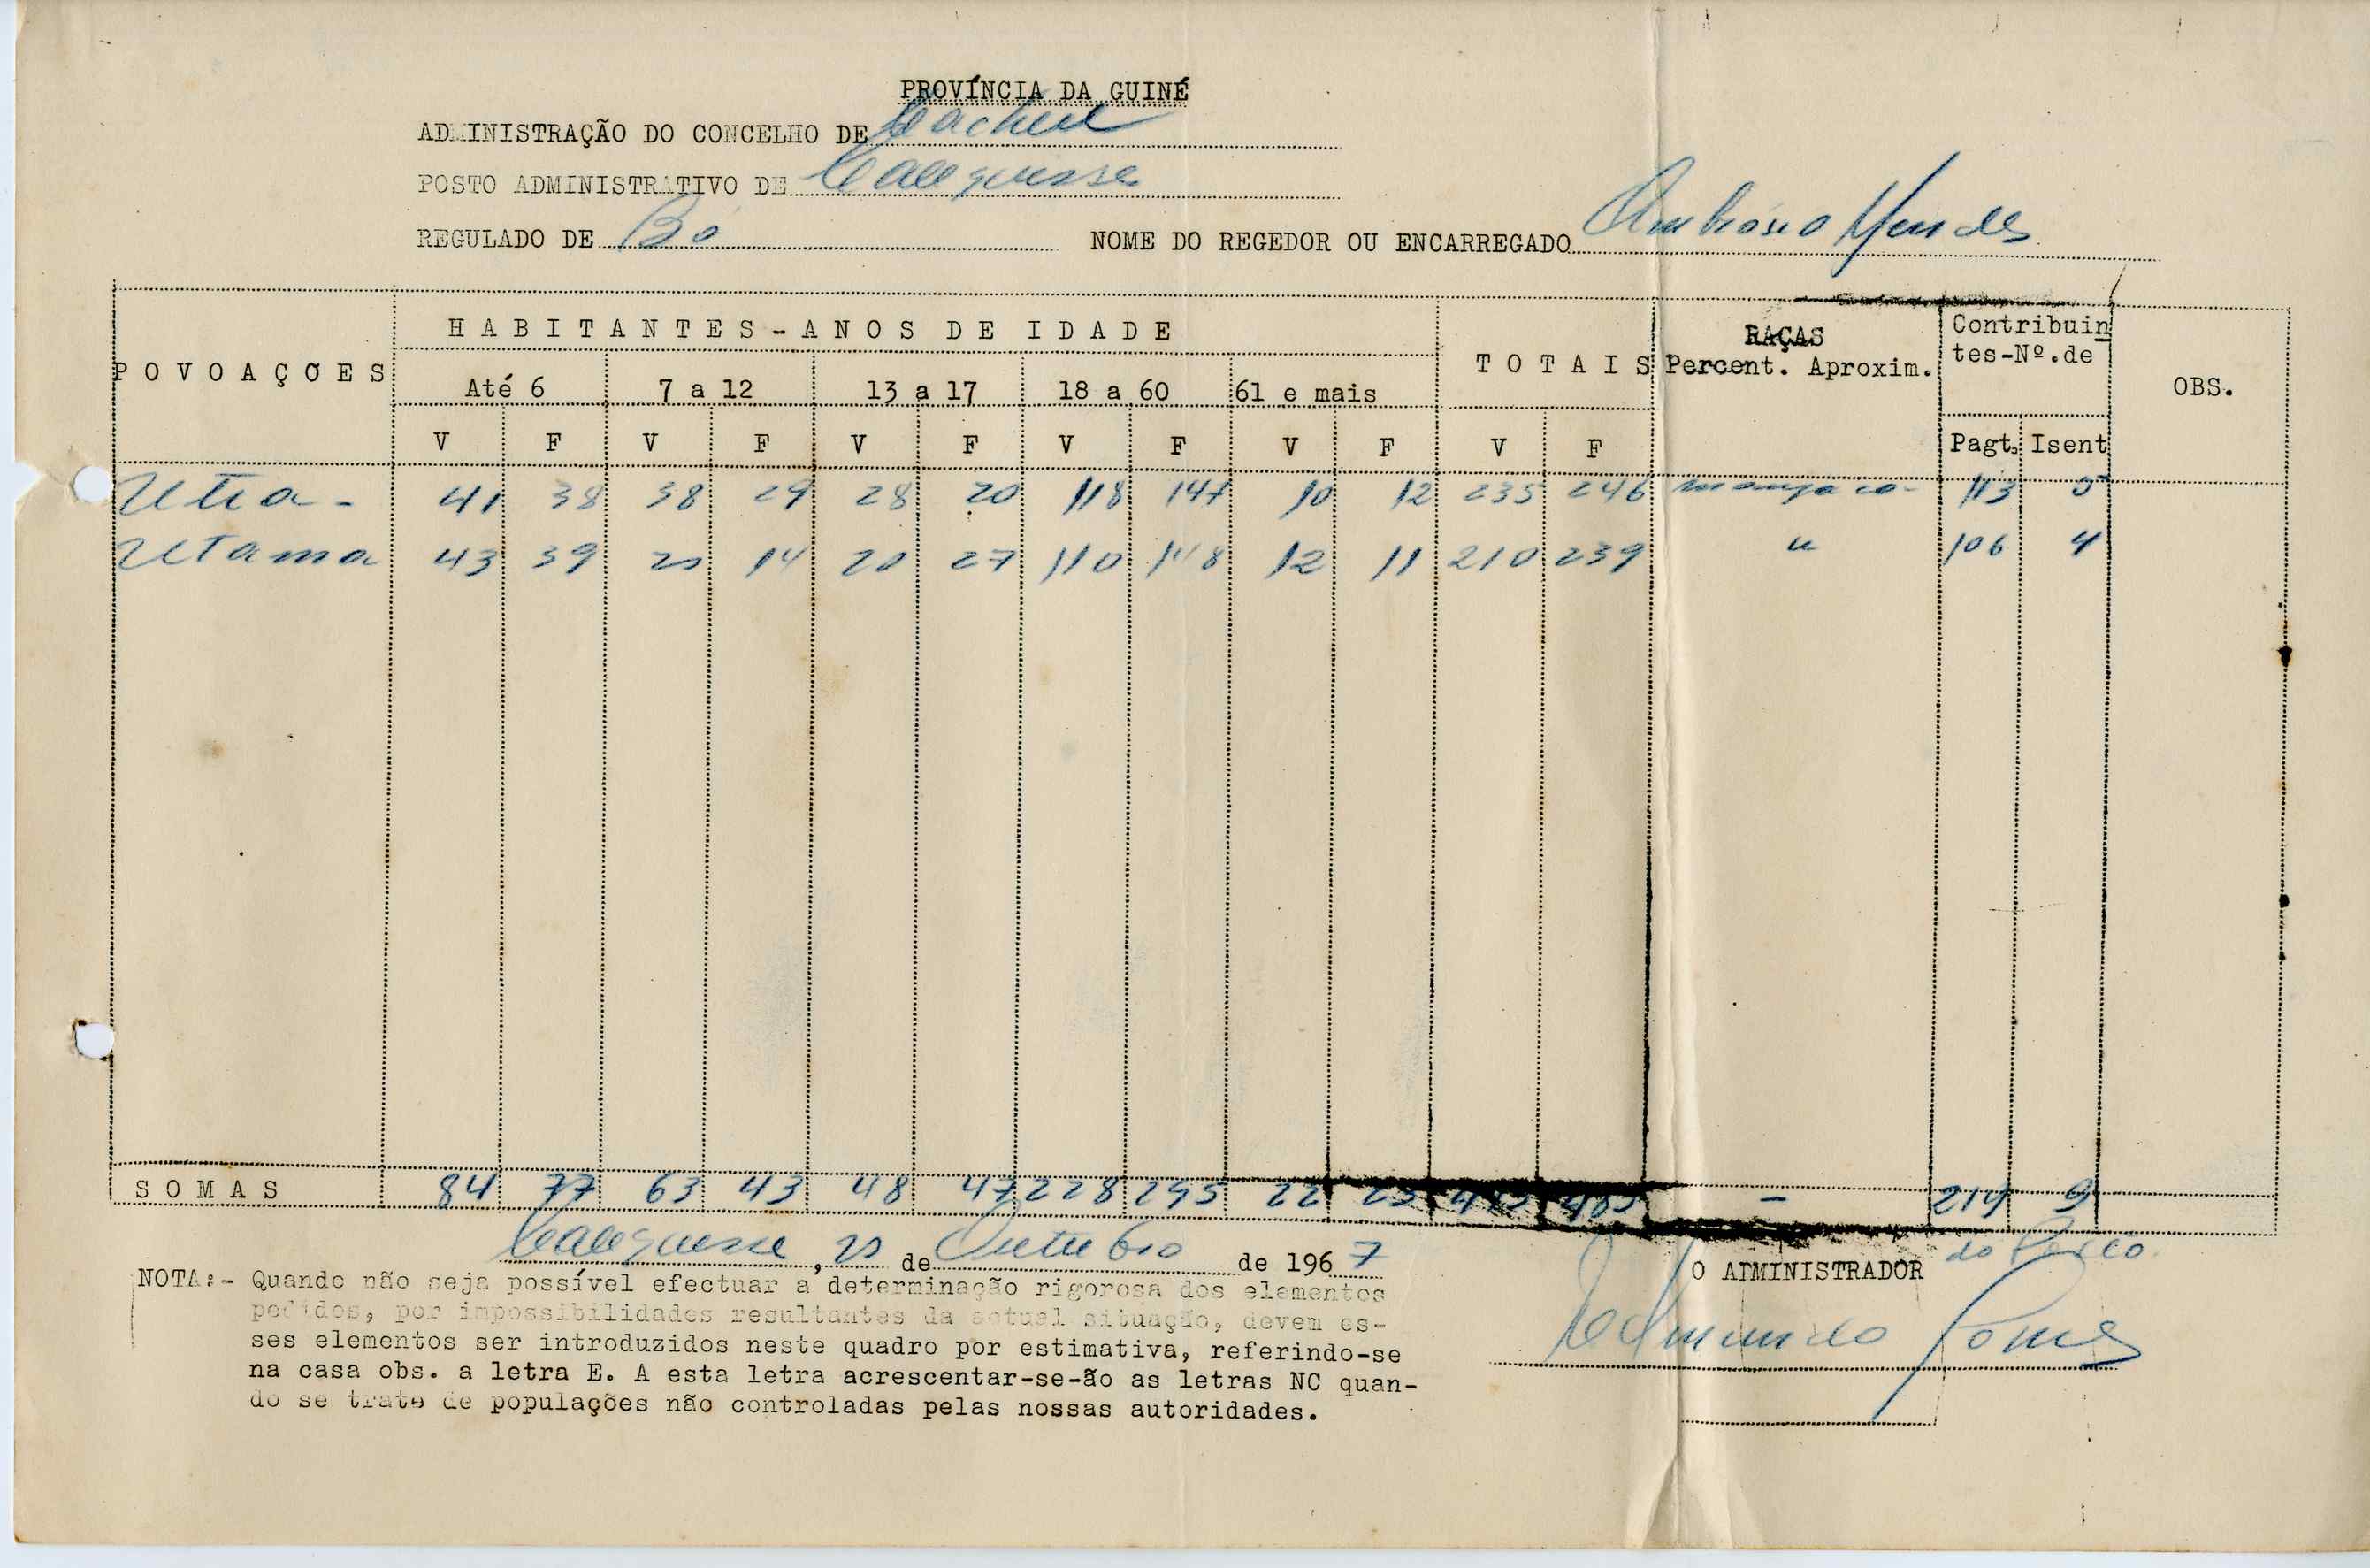 PROVÍNCIA DA GUINÉ
ADMINISTRAÇÃO DO CONCELHO DE Cacheu
POSTO ADMINISTRATIVO DE Calequisse
REGULADO DE Bó NOME DO REGEDOR OU ENCARREGADO Ambrósio Mendes
POVOAÇÕES HABITANTES-ANOS DE IDADE TOTAIS RAÇAS Percent. Aproxim. Contribuintes-Nº.de OBS.
Até 6 7 a 12 13 a 17 18 a 60 61 e mais
V F V F V F V F V F V F Pagt. Isent
Utia - 41 38 38 29 28 20 118 147 10 12 235 246 manjaco- 113 5
Utama 43 39 25 14 20 27 110 148 12 11 210 239 " 106 4
SOMAS 84 77 63 43 48 47 228 295 22 23 445 485 - 219 9
Calequisse, 25 de Outubro de 1967
O ADMINISTRADOR do Posto
NOTA:- Quando não seja possível efectuar a determinação rigorosa dos elementos
pedidos, por impossibilidades resultantes da actual situação, devem es-
ses elementos ser introduzidos neste quadro por estimativa, referindo-se
na casa obs. a letra E. A esta letra acrescentar-se-ão as letras NC quan-
do se trate de populações não controladas pelas nossas autoridades.